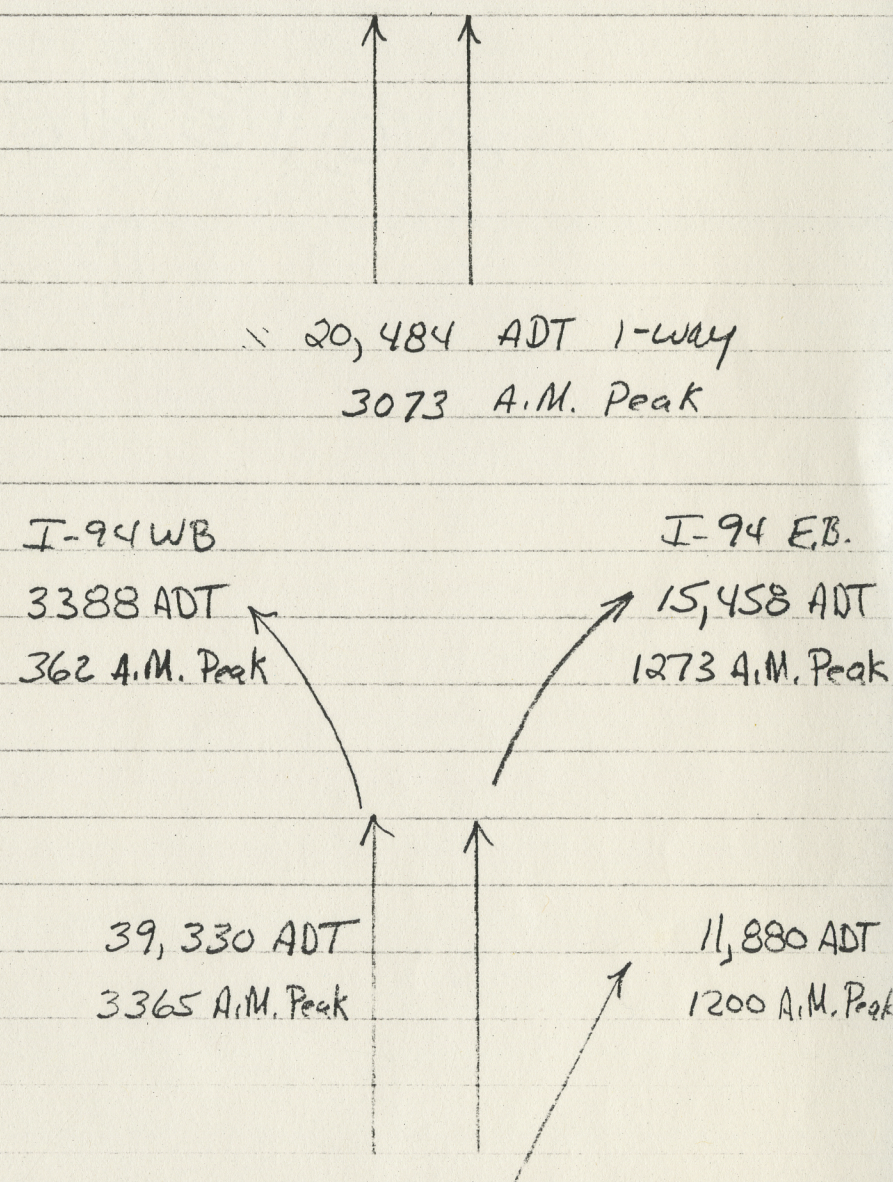 20,484 ADT 1-way
3073 A.M. Peak
I-94 WB
3388 ADT
362 A.M. Peak
I-94 E.B.
15,458 ADT
1273 A.M. Peak
39,330 ADT
3365 A.M. Peak
11,880 ADT
1200 A.M. Peak